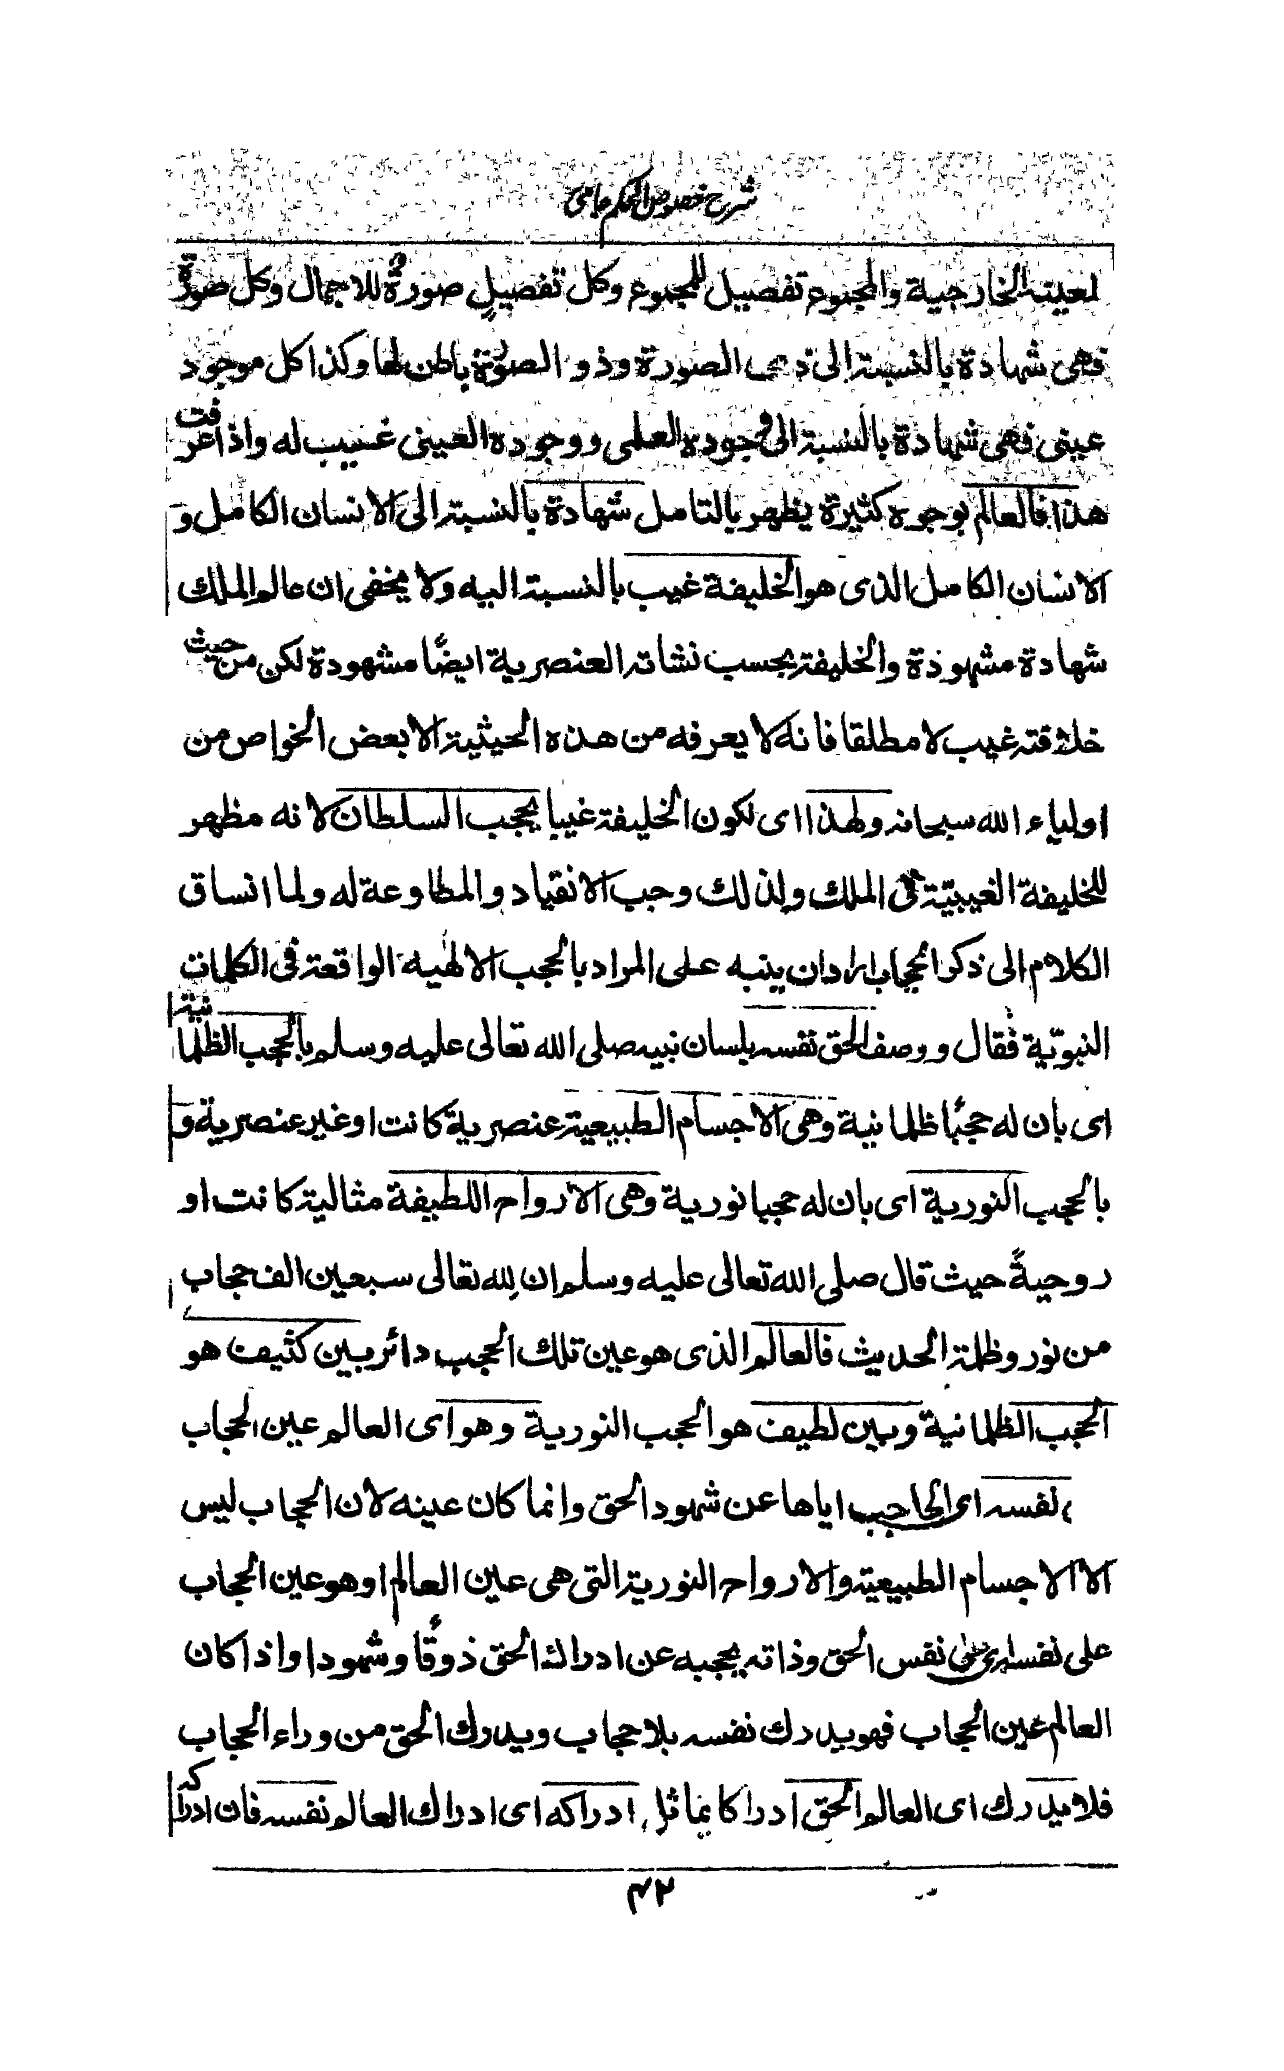 شرح فصوص الحكم جامى
لعينيه الخارجية والمجموع تفصيل للمجموع وكل تفصيل صورةٌ للاجمال وكل صورة
فهى شهادة بالنسبة الى ذى الصورة وذو الصورة باطن لها وكذا كل موجود
عينى فهى شهادة بالنسبة الى وجوده العلمى ووجوده العينى غيب له واذا عرفت
هذا فالعالم بوجوه كثيرة يظهر بالتامل شهادة بالنسبة الى الانسان الكامل و
الانسان الكامل الذى هو الخليفة غيب بالنسبة اليه ولا يخفى ان عالم الملك
شهادة مشهودة والخليفة بحسب نشاته العنصرية ايضًا مشهودة لكن من حيث
خلافته غيب لا مطلقا فانه لا يعرفه من هذه الحيثية الا بعض الخواص من
اولياء الله سبحانه ولهذا اى لكون الخليفة غيبا يحجب السلطان لانه مظهر
للخليفة الغيبيّة فى الملك ولذلك وجب الانقياد والمطاوعة له ولما انساق
الكلام الى ذكر الحجاب اراد ان ينبه على المراد بالحجب الالهيه الواقعة فى الكلمات
النبويّة فقال ووصف الحق نفسه بلسان نبيه صلى الله تعالى عليه وسلم بالحجب الظلمانية
اى بان له حجبًا ظلمانية وهى الاجسام الطبيعية عنصرية كانت او غير عنصرية و
بالحجب النورية اى بان له حجبا نورية وهى الارواح اللطيفة مثالية كانت او
روحيةً حيث قال صلى الله تعالى عليه وسلم ان لله تعالى سبعين الف حجاب
من نور وظلمة الحديث فالعالم الذى هو عين تلك الحجب دائر بين كثيف هو
الحجب الظلمانية وبين لطيف هو الحجب النورية وهو اى العالم عين الحجاب
لنفسه اى الحاجب اياها عن شهود الحق وانما كان عينه لان الحجاب ليس
الا الاجسام الطبيعية والارواح النورية التى هى عين العالم او هو عين الحجاب
على نفسه اى على نفس الحق وذاته يحجبه عن ادراك الحق ذوقًا وشهودا واذا كان
العالم عين الحجاب فهو يدرك نفسه بلا حجاب ويدرك الحق من وراء الحجاب
فلا يدرك اى العالم الحق ادراكا يماثل ادراكه اى ادراك العالم نفسه فان ادراكه
۴۲